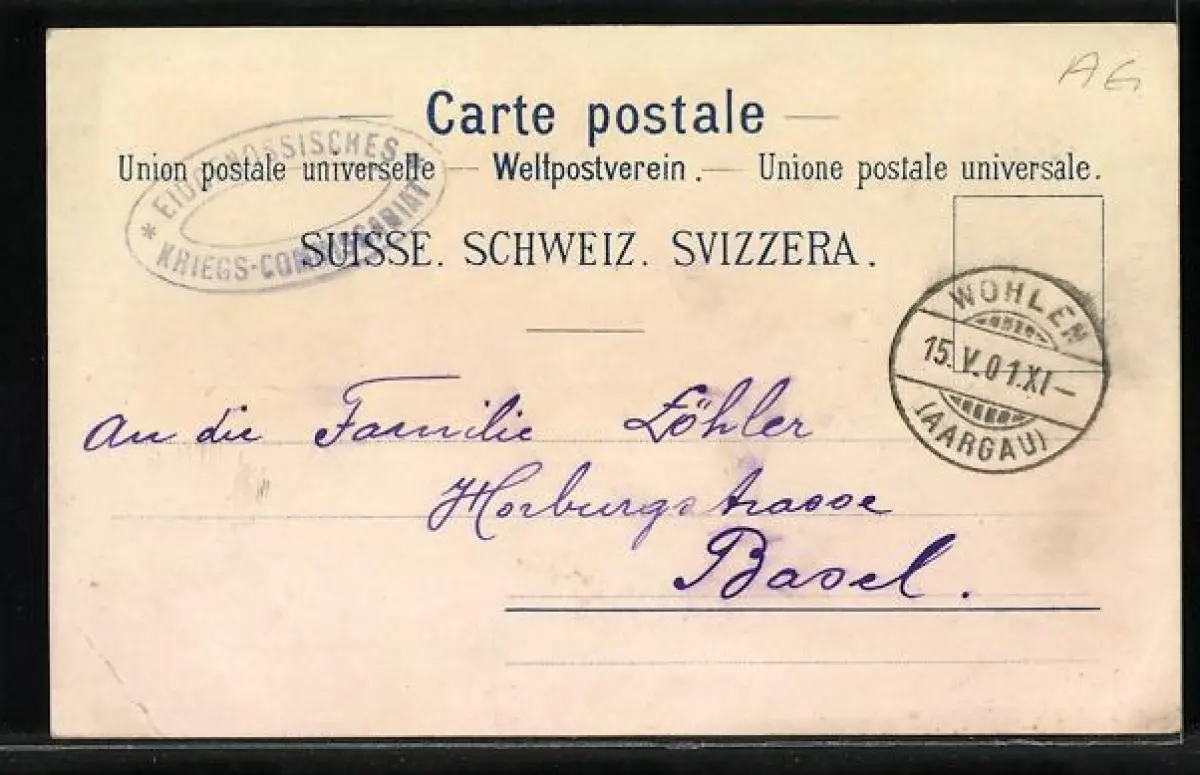 AG
Carte postale
Union postale universelle — Weltpostverein. — Unione postale universale.
EIDGENÖSSISCHES
* KRIEGS-COMMISSARIAT
SUISSE. SCHWEIZ. SVIZZERA.
WOHLEN
15.V.01.XI—
(AARGAU)
An die Familie Zöhler
Horburgstrasse
Basel.